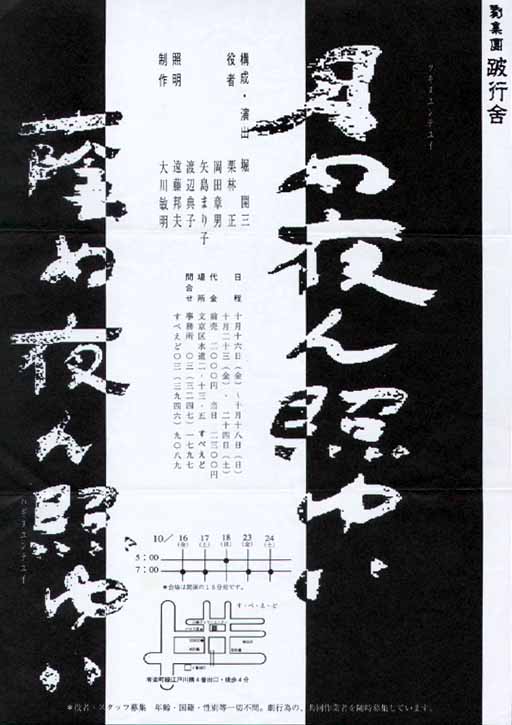 劇集団 跛行舎
月ぬ夜ん照ゆい
ツキヌユンテユイ
構成・演出 堀 開三
役者 栗林 正
岡田章男
矢島まり子
渡辺典子
照明 遠藤邦夫
制作 大川敏明
日程 十月十六日(金)〜十月十八日(日)
十月二十三(金)、二十四日(土)
代金 前売 二〇〇〇円 当日 二三〇〇円
場所 文京区水道二・十三・五 すぺえど
問合せ 事務所 〇三(三二四七)一七九七
すぺえど〇三(三九四六)九〇八九
陰ぬ夜ん照ゆい
10/ 16 17 18 23 24
(金) (土) (日) (金) (土)
5:00
7:00
*会場は開演の15分前です。
す・ぺ・え・ど
有楽町線江戸川橋4番出口・徒歩4分
*役者・スタッフ募集 年齢・国籍・性別等一切不問。劇行為の、共同作業者を随時募集しています。